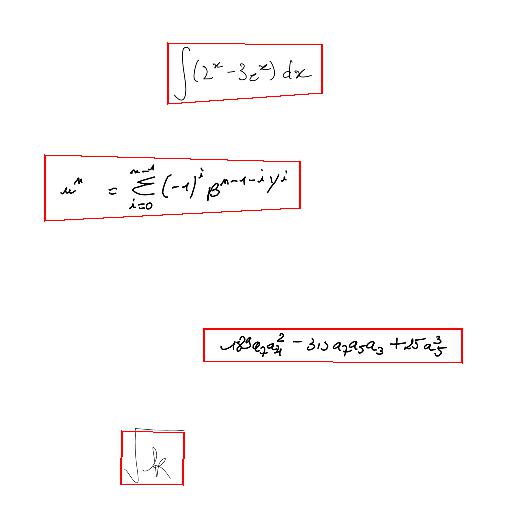 ∫(2^x - 3e^x) dx
u^n = \sum_{i=0}^{n-1} (-1)^i β^{n-1-i} γ^i
189a_7a_4^2 - 313a_7a_5a_3 + 25a_5^3
√k